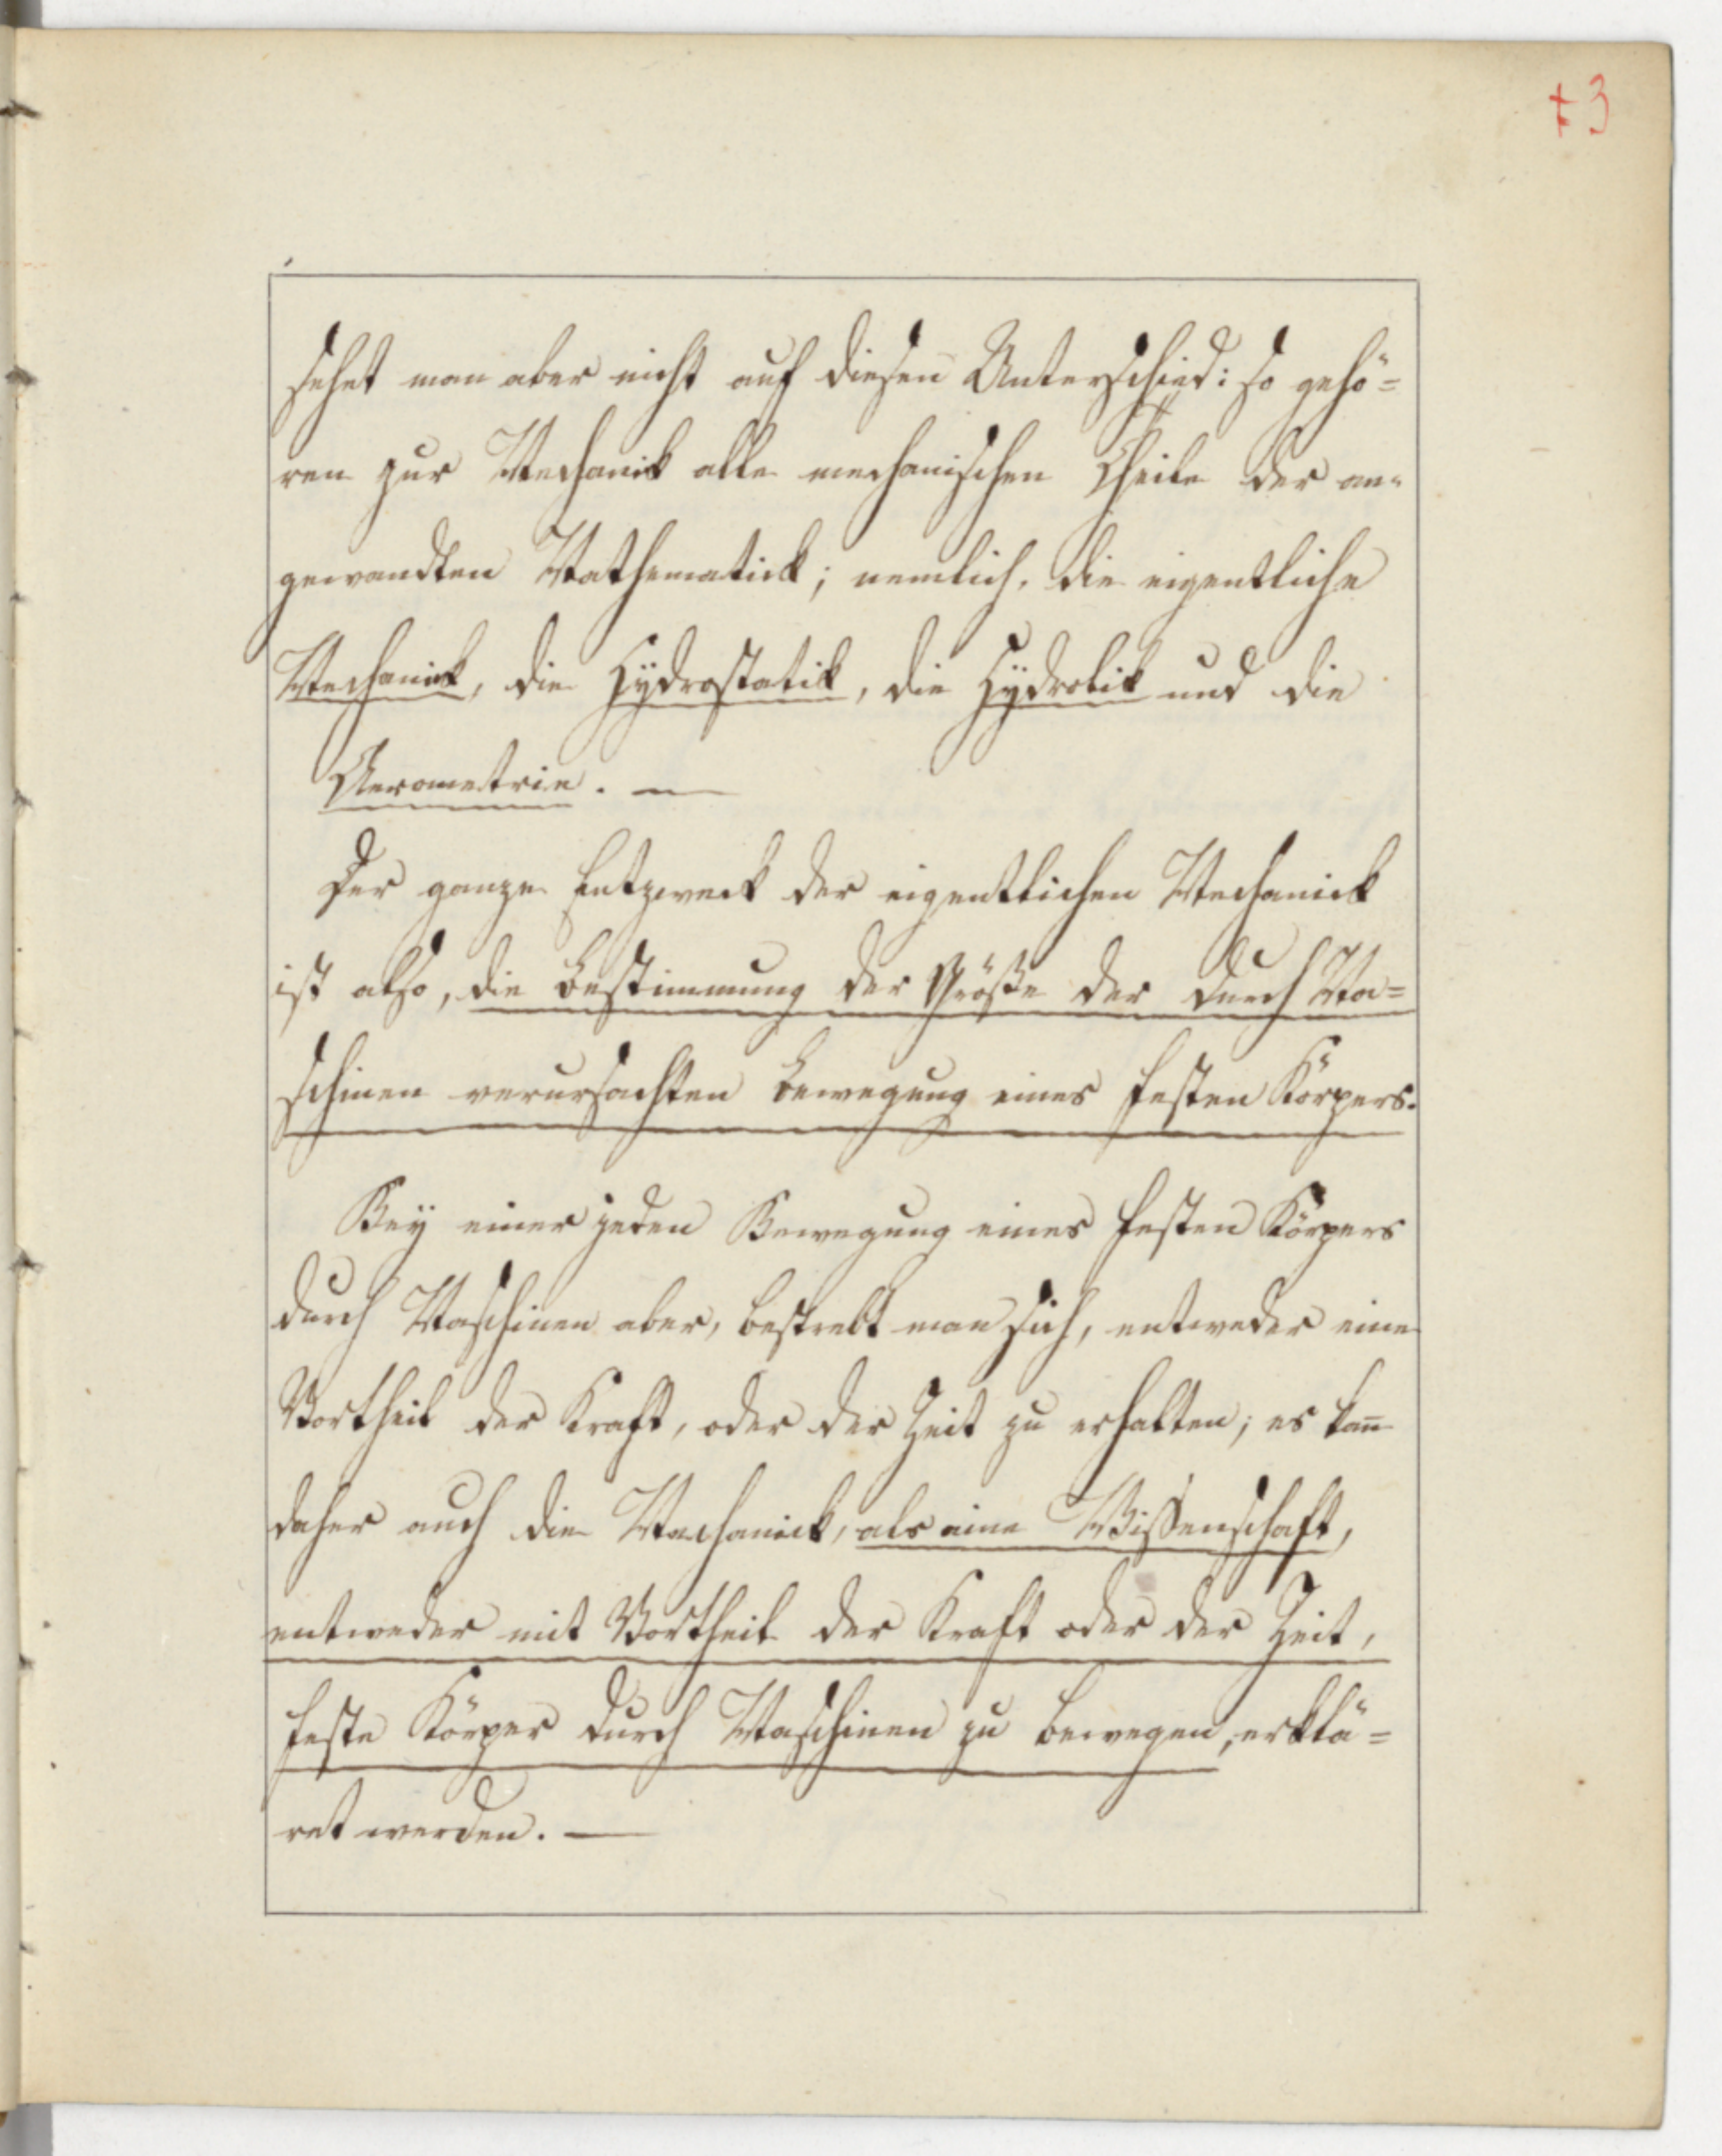 +3
sehet man aber nicht auf diesen Unterschied: so gehö=
ren zur Mechanik alle mechanischen Theile der an=
gewandten Mathematick; nemlich, die eigentliche
Mechanick, die Hÿdrostatik, die Hÿdrolik und die
Aerometrie. —
Der ganze Entzweck der eigentlichen Mechanick
ist also, die Bestimmung der Größe der durch Ma=
schinen verursachten Bewegung eines festen Körpers.
Beÿ einer jeden Bewegung eines festen Körpers
durch Maschinen aber, bestrebt man sich, entweder eine
Vortheil der Kraft, oder der Zeit zu erhalten; es kan̄
daher auch die Mechanick, als eine Wissenschaft,
entweder mit Vortheil der Kraft oder der Zeit,
feste Körper durch Maschinen zu bewegen, erklä=
ret werden. —